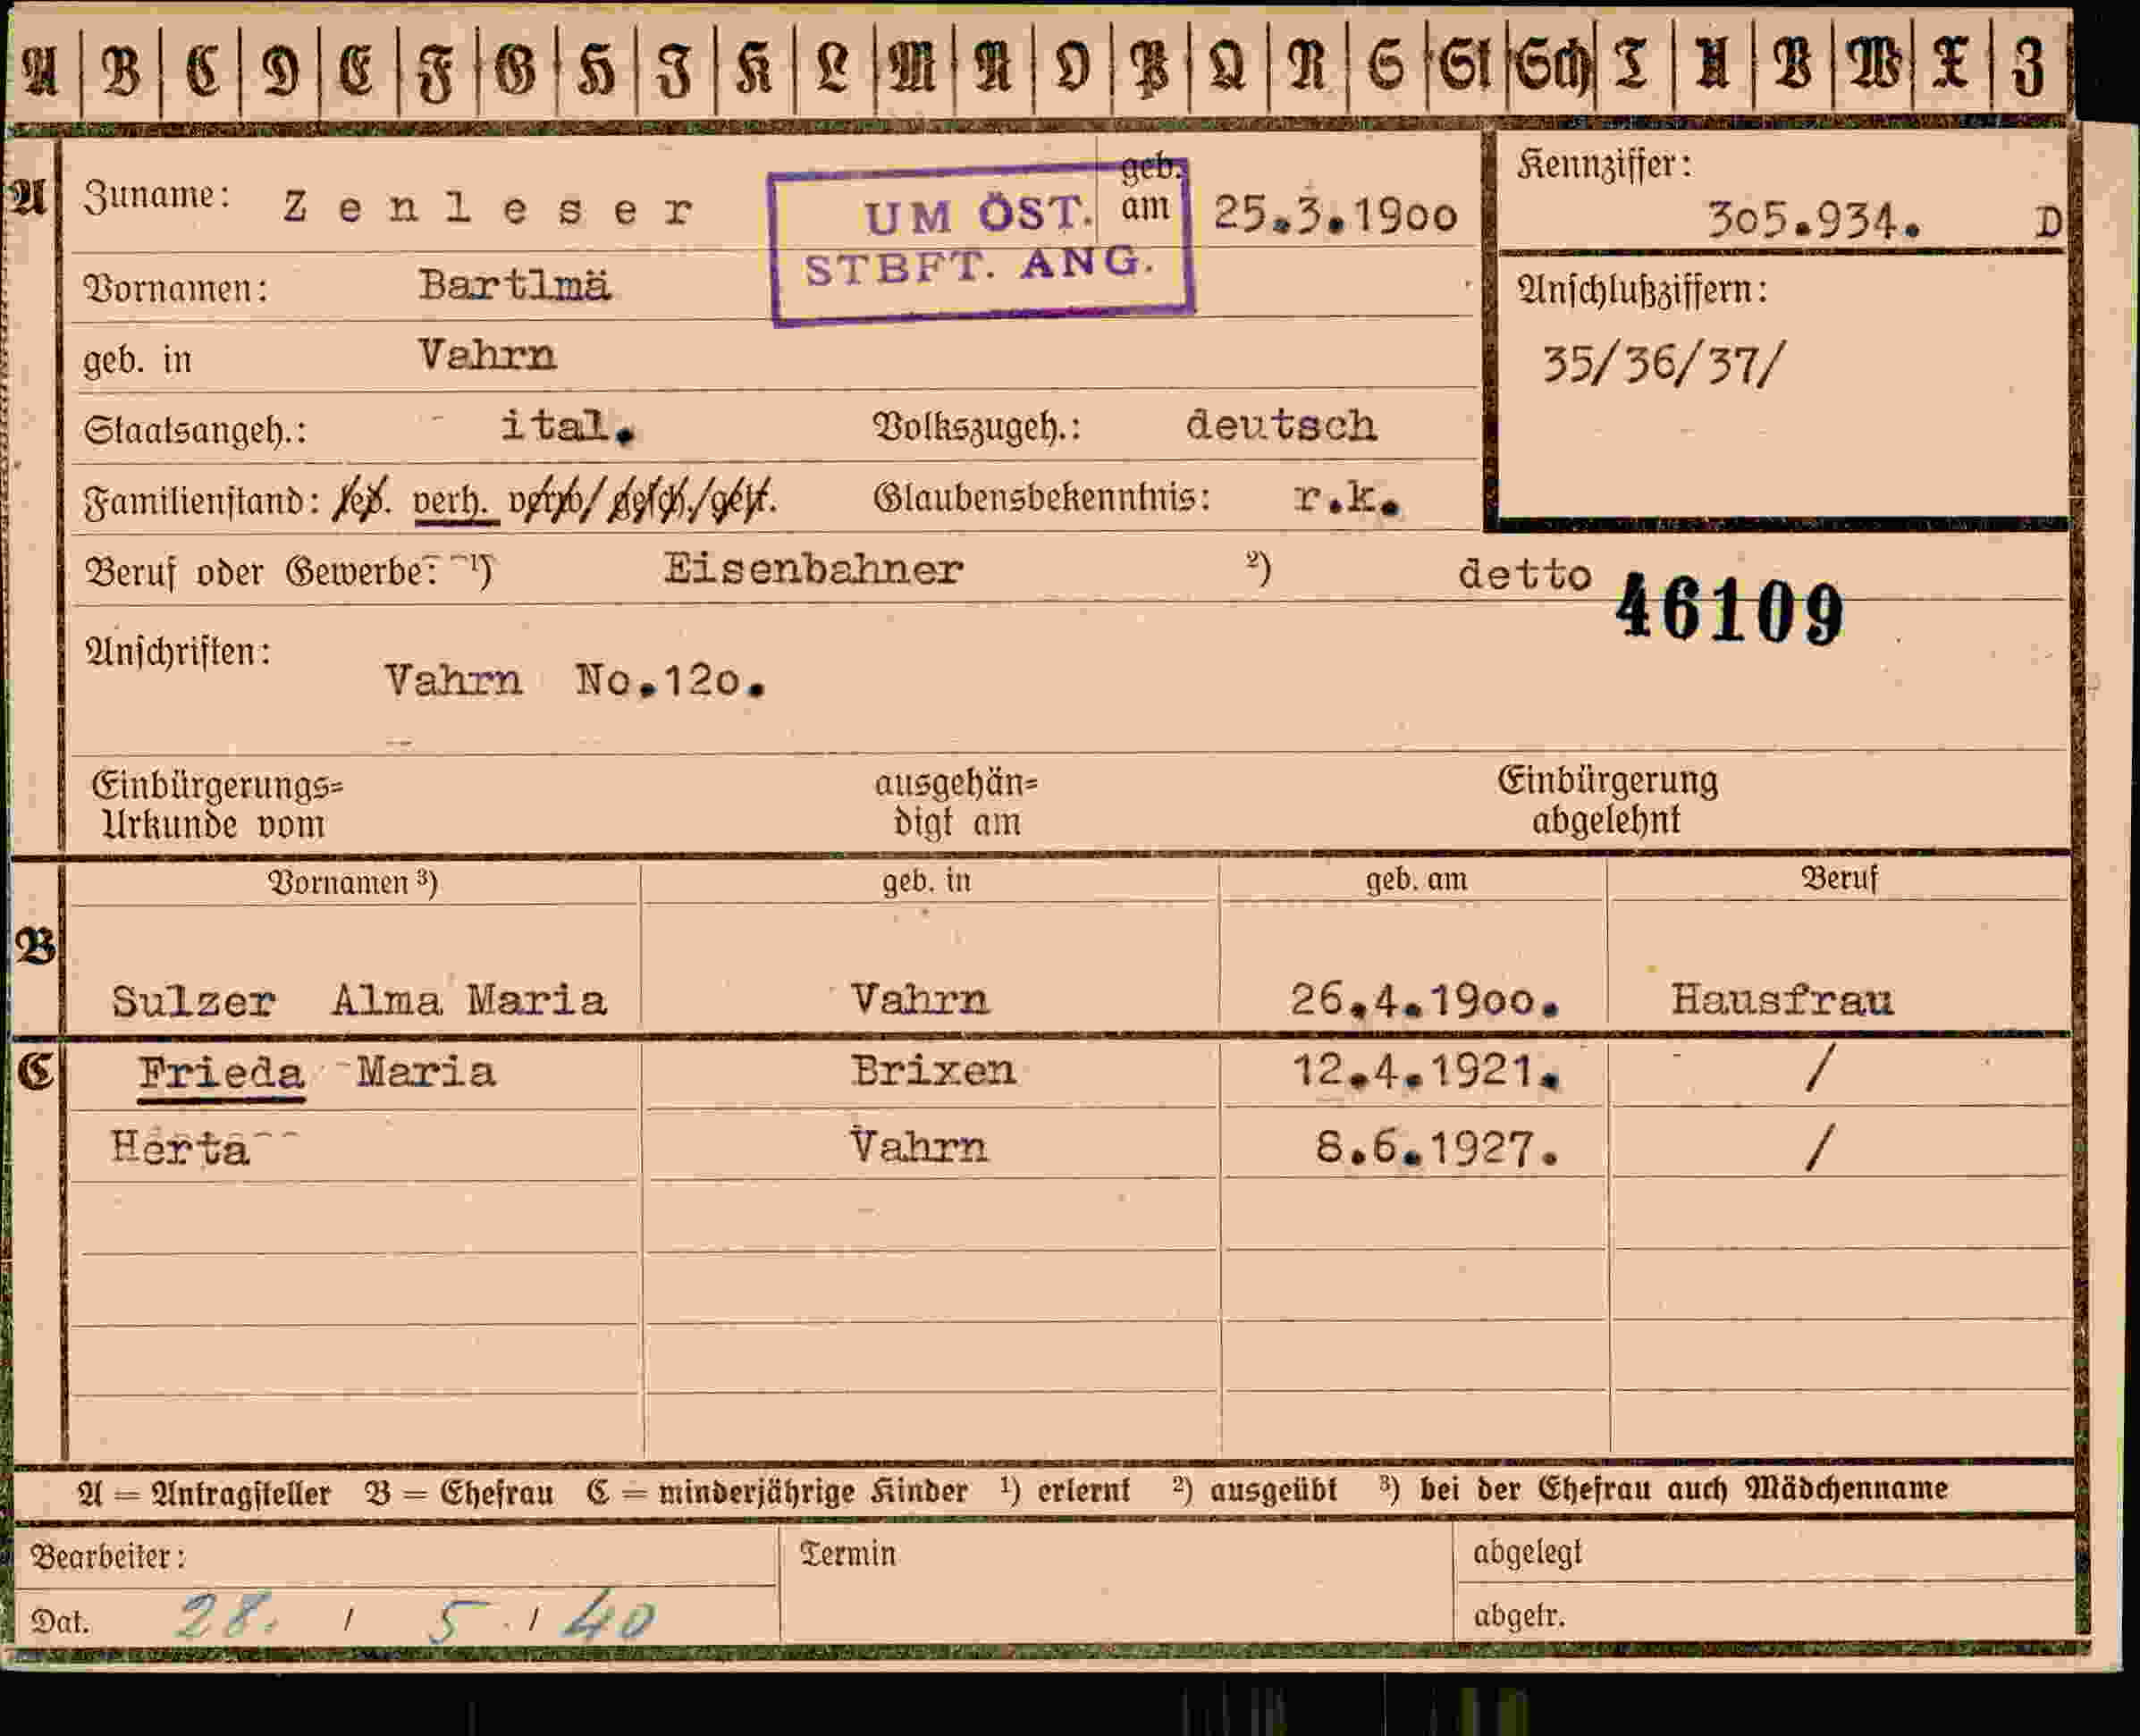 A B C D E F G H I K L M N O P Q R S St Sch T U V W X Z
A Zuname: Zenleser geb. am 25.3.1900
UM ÖST.
STBFT. ANG.
Kennziffer:
305.934. D
Vornamen: Bartlmä
Anschlußziffern:
35/36/37/
geb. in Vahrn
Staatsangeh.: ital. Volkszugeh.: deutsch
Familienstand: led. verh. verw/ gesch./get. Glaubensbekenntnis: r.k.
Beruf oder Gewerbe: 1) Eisenbahner 2) detto
46109
Anschriften:
Vahrn No.120.
Einbürgerungs=
Urkunde vom
ausgehän=
digt am
Einbürgerung
abgelehnt
Vornamen 3) geb. in geb. am Beruf
B
Sulzer Alma Maria Vahrn 26.4.1900. Hausfrau
C Frieda Maria Brixen 12.4.1921. /
Herta Vahrn 8.6.1927. /
A = Antragsteller B = Ehefrau C = minderjährige Kinder 1) erlernt 2) ausgeübt 3) bei der Ehefrau auch Mädchenname
Bearbeiter: Termin abgelegt
Dat. 28. / 5. / 40 abgetr.